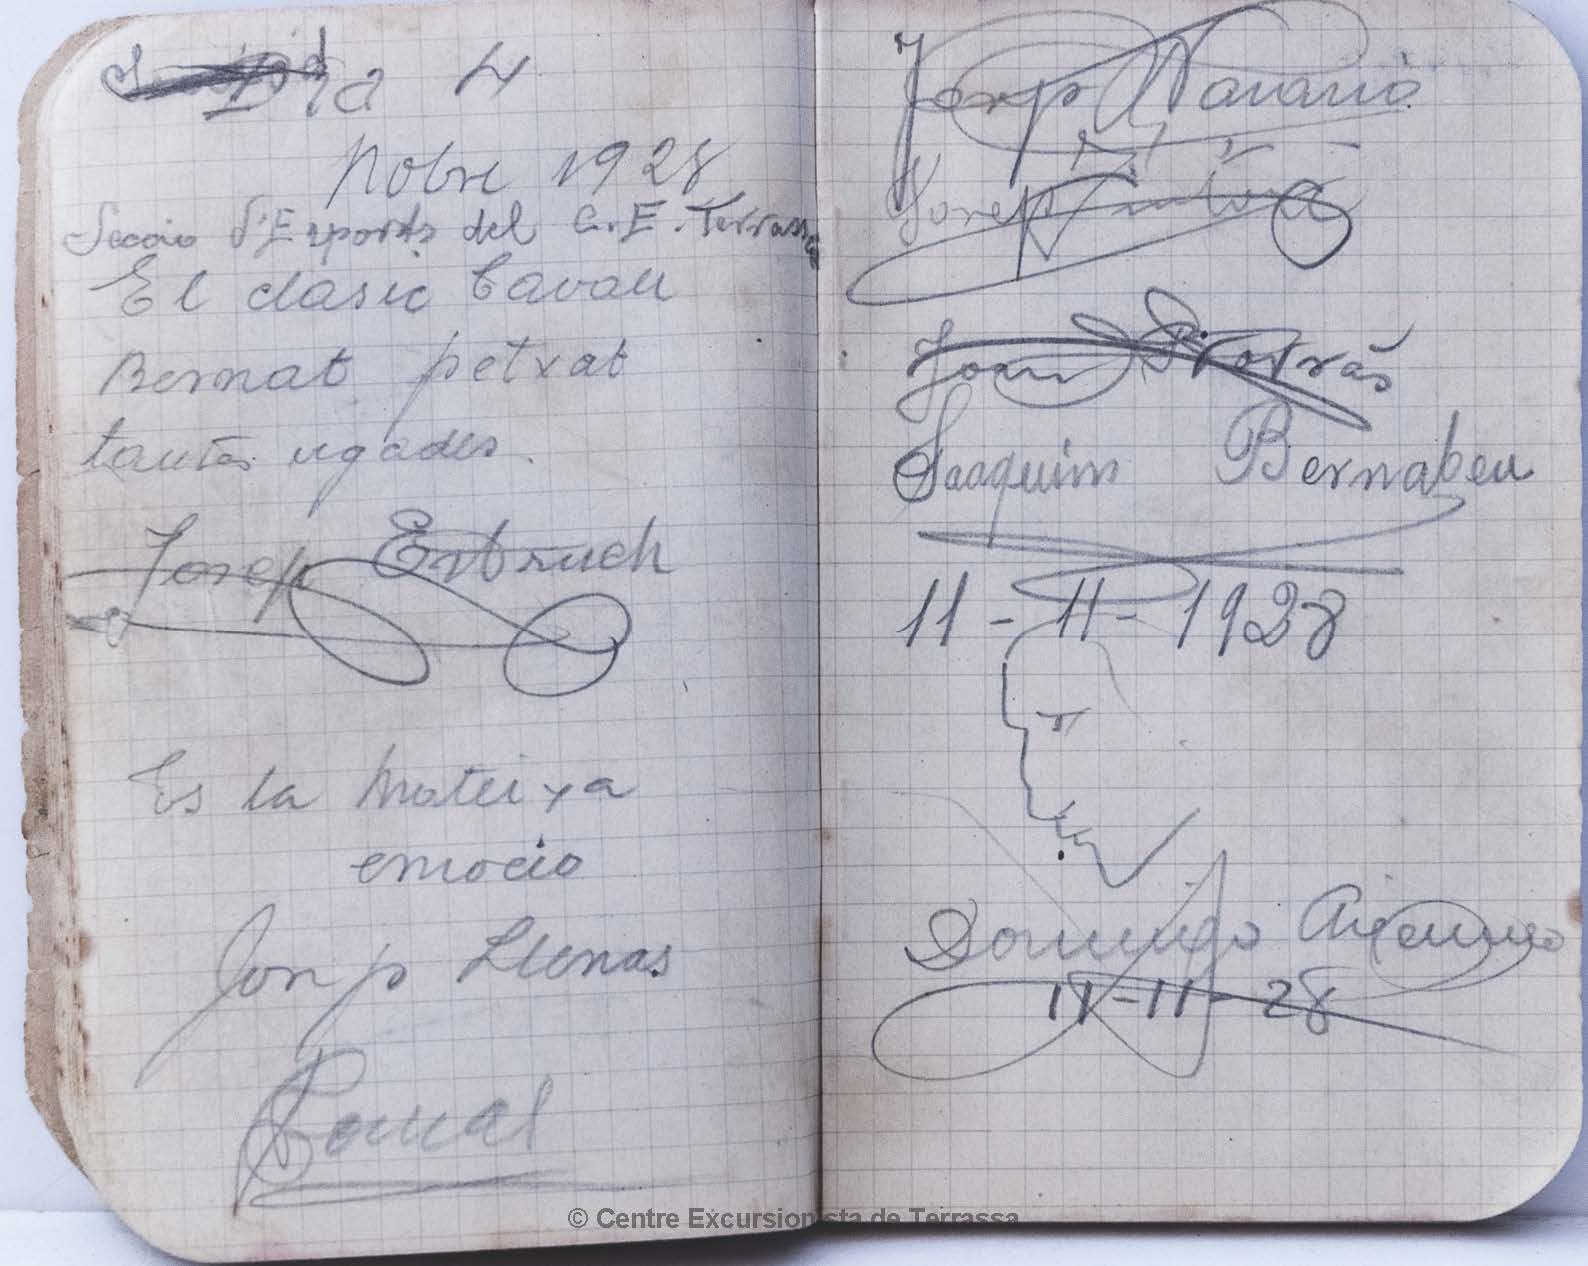 Dia 4
Nobre 1928
Seccio d'Esports del C. E. Terrassa
El clasic Cavall
Bernat petxat
tantas vgades.
Josep Estruch
Es la mateixa
emocio
Josep Llenas
Pasqual
Josep Navarro
Josep
Joan
Joaquim Bernabeu
11-11-1928
Domingo
11-11-28
© Centre Excursionista de Terrassa